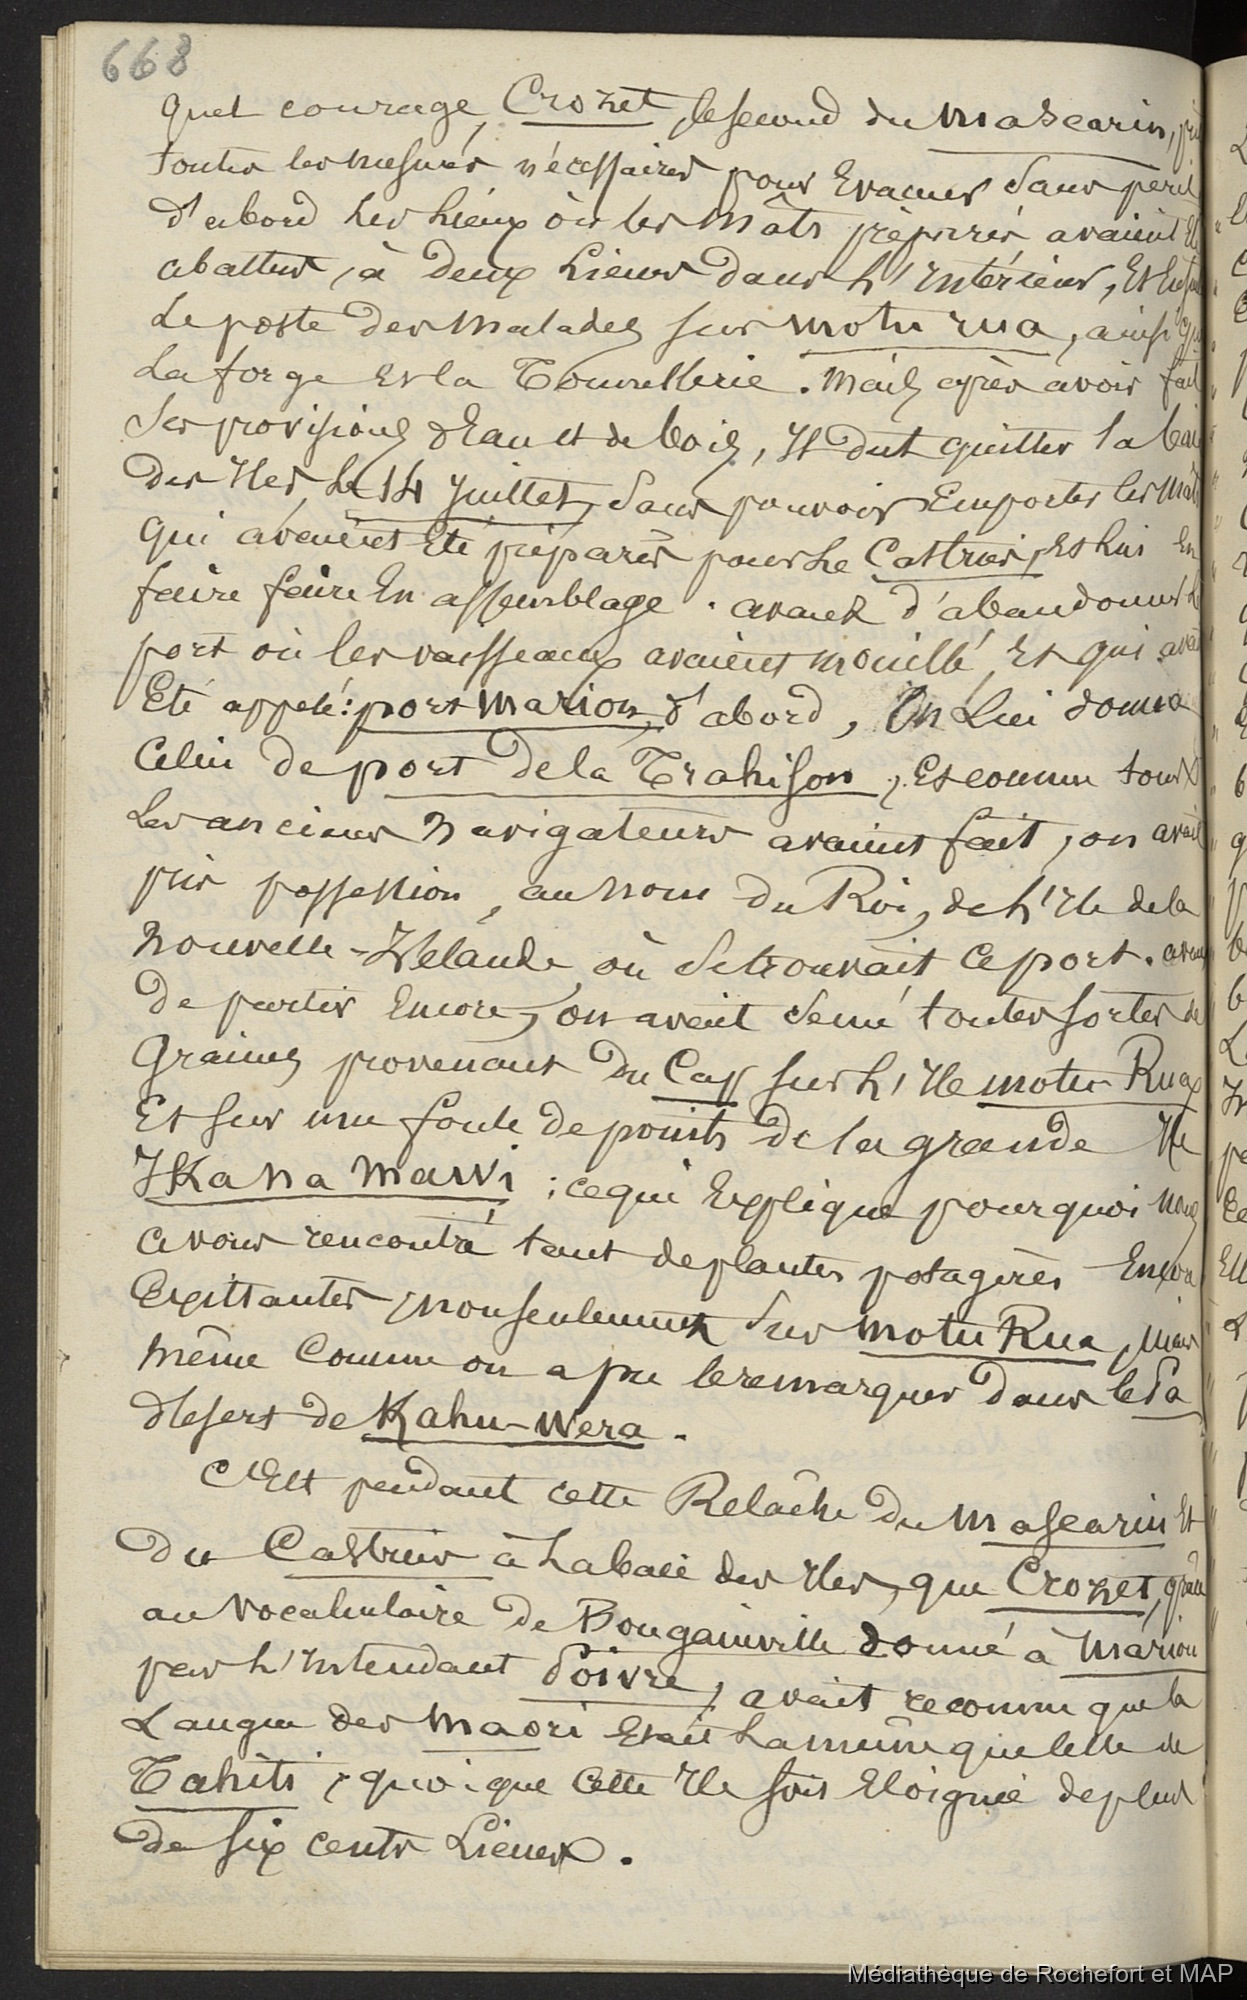 668
quel courage, Crozet, le second du Mascarin, prit
toutes les mesures nécessaires pour Evacuer sans péril
d'abord les lieux où les Mâts préparés avaient Eté
abattus, à deux Lieues dans l'intérieur, Et Ensuite
Le poste des Malades sur Motu rua, ainsi que
La forge Et la Tonnellerie. Mais après avoir fait
Ses provisions d'Eau et de bois, Il dut quitter la baie
des Iles, le 14 Juillet, Sans pouvoir Emporter les Mâts
qui avaient Eté préparés pour Le Castries, Et lui En
faire faire En assemblage. avant d'abandonner le
port où les vaisseaux avaient mouillé, Et qui avait
Eté appelé: port Marion, d'abord, On Lui donna
Celui de port de la Trahison, Et comme tous
Les anciens Navigateurs avaient fait, on avait
pris possession, au Nom du Roi, de l'Ile de la
Nouvelle-Zélande, où Se trouvait Ce port. avant
de partir Encore, on avait Semé toutes sortes de
Graines provenant du Cap sur l'Ile Motu-Rua,
Et sur une foule de points de la grande Ile
IKa Na Mawi; ce qui Explique pourquoi Nous
avons rencontré tant de plantes potagères Encore
Existantes, non seulement Sur Motu Rua, Mais
Même Comme on a pu le remarquer dans le Pa
désert de Kahu-Wera.
C'Est pendant cette Relâche du Mascarin Et
du Castries à La baie des Iles, que Crozet, grâce
au Vocabulaire de Bougainville donné à Marion
par L'Intendant Poivre, avait reconnu que la
Langue des Maori Etait La même que celle de
Tahiti, quoique Cette Ile soit Eloignée de plus
de six cents Lieues.
Médiathèque de Rochefort et MAP